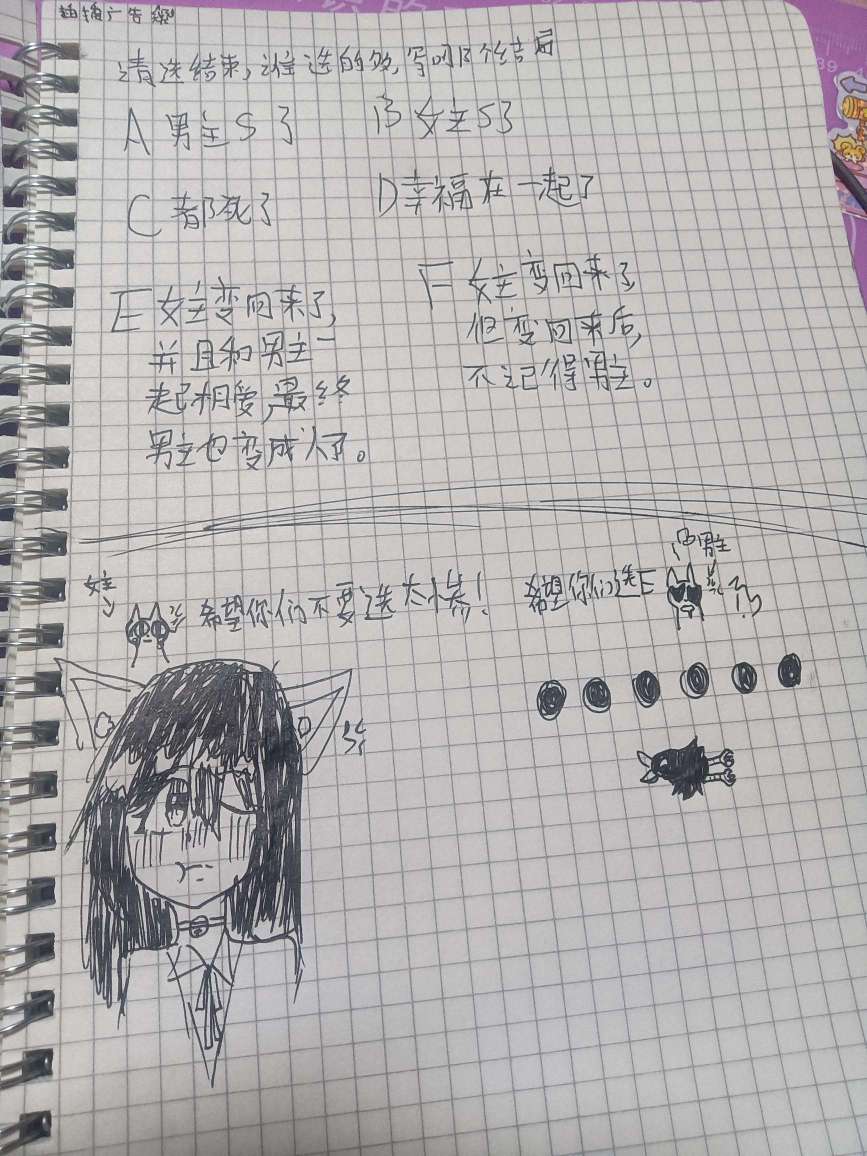 插播广告
请选结束,谁选的多,写哪个结局
A 男主S了
B 女主S了
C 都死了
D 幸福在一起了
E 女主变回来了,
并且和男主一
起相爱,最终
男主也变成人了。
F 女主变回来了,
但变回来后,
不记得男主。
女主
希望你们不要选太惨!
男主
希望你们选E